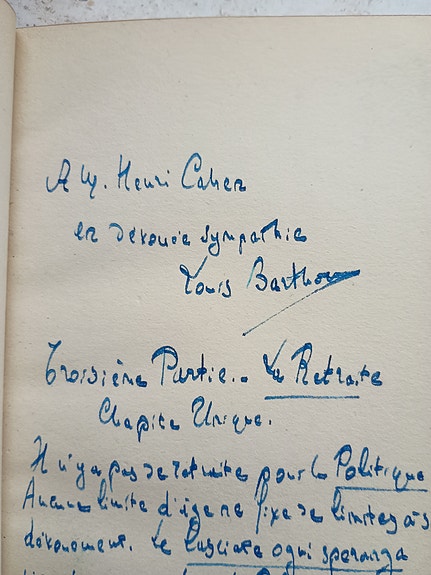 A M. Henri Cahen
en dévouée sympathie
Louis Barthou
Troisième Partie.. La Retraite
Chapitre Unique.
Il n'y a pas de retraite pour le Politique
Aucune limite d'âge ne fixe de limites à s
dévouement. Le Lasciate ogni speranza